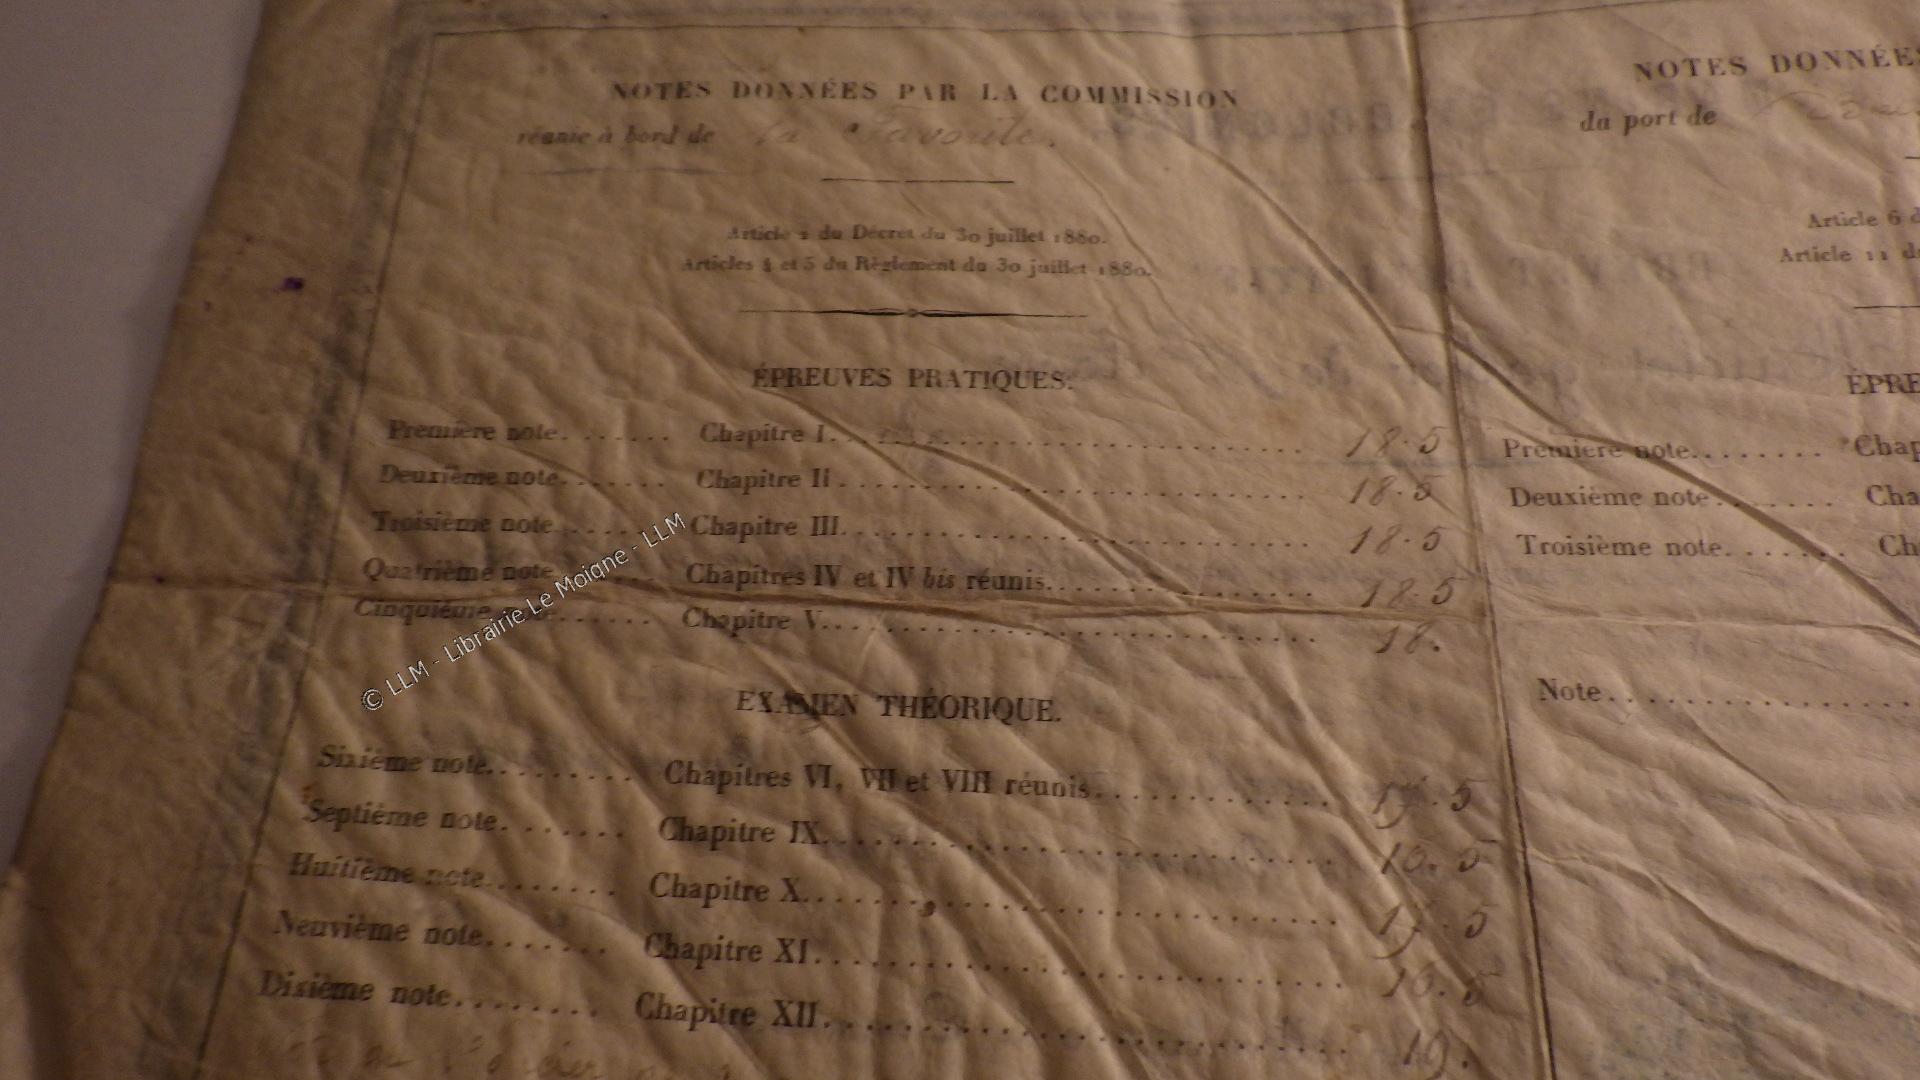 NOTES DONNÉES PAR LA COMMISSION
réunie à bord de la Favorite.
Article 2 du Décret du 30 juillet 1880.
Articles 4 et 5 du Règlement du 30 juillet 1880.
ÉPREUVES PRATIQUES.
Première note....... Chapitre I. 18.5
Deuxième note....... Chapitre II. 18.5
Troisième note....... Chapitre III. 18.5
Quatrième note....... Chapitres IV et IV bis réunis. 18.5
Cinquième note....... Chapitre V. 18.
EXAMEN THÉORIQUE.
Sixième note........ Chapitres VI, VII et VIII réunis. 17.5
Septième note....... Chapitre IX. 16.5
Huitième note....... Chapitre X. 17.5
Neuvième note....... Chapitre XI. 16.5
Dixième note........ Chapitre XII. 19.
NOTES DONNÉES
du port de
Article 6 d
Article 11 d
ÉPRE
Première note........ Chap
Deuxième note....... Cha
Troisième note....... Ch
Note.
© LLM - Librairie Le Moigne - LLM